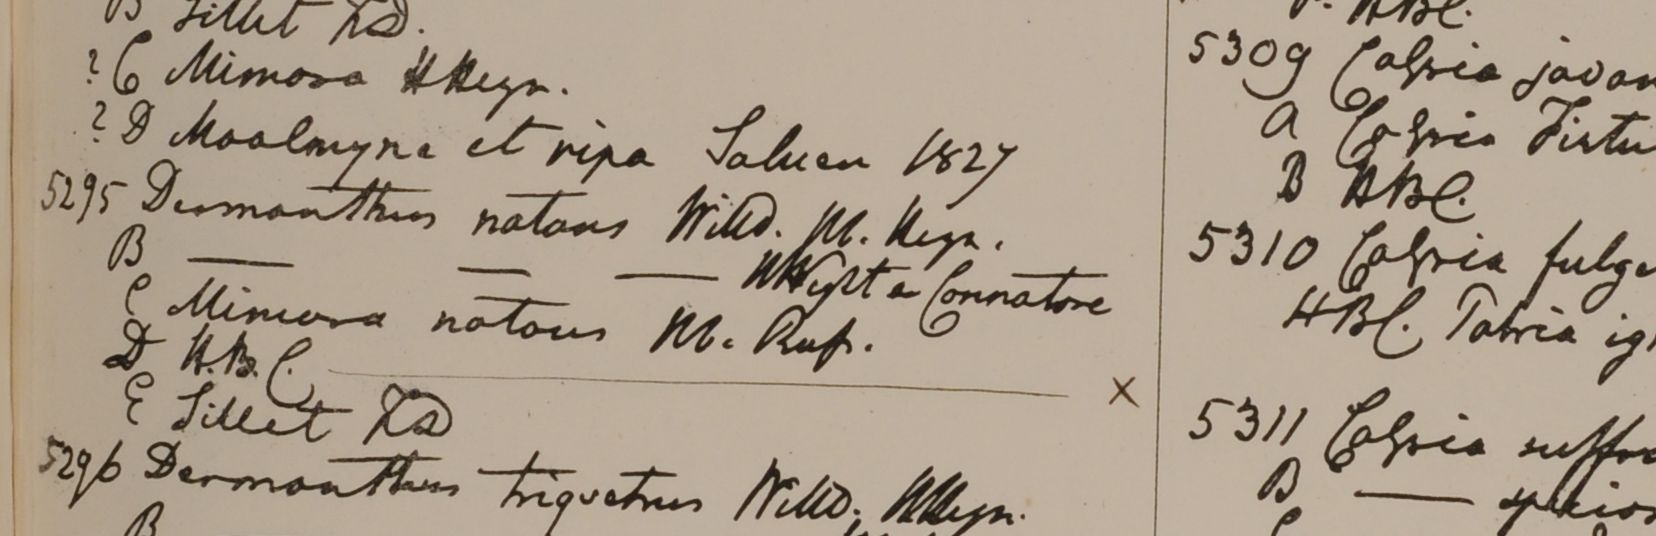 B Sillet FD.
? C Mimosa HHeyn.
? D Moalmyne et ripa Saluen 1827
5295 Desmanthus natans Willd. M. Heyn.
B — — — HWight a Connatore
C Mimosa natans M. Rup.
D H.B.C. X
E Sillet FD
5296 Desmanthus triquetrus Willd. HHeyn.
B
HBC.
5309 Cassia javan
A Cassia Fistu
B HBC.
5310 Cassia fulge
HBC.
5311 Cassia suffru
B —
C